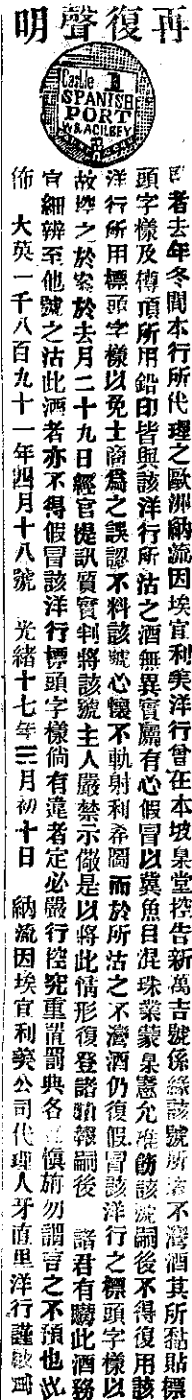 再復聲明
Castle
SPANISH
PORT
W & A GILBEY
者去年冬間本行所代理之歐洲納流因埃宜利美洋行曾在本坡臬堂控告新萬吉號係緣該號所沽不灣酒其所黏貼標
頭字樣及樽頂所用鉛印皆與該洋行所沽之酒無異實屬有心假冒以冀魚目混珠業蒙臬憲允准飭該號嗣後不得復用該
洋行所用標頭字樣以免士商為之誤認不料該號心懷不軌射利希圖而於所沽之不灣酒仍復假冒該洋行之標頭字樣以
故控之於案於去月二十九日經官提訊質實判將該號主人嚴禁示儆是以將此情形復登諸報嗣後 諸君有購此酒務
宜細辨至他號之沽此酒者亦不得假冒該洋行標頭字樣倘有違者定必嚴行控究重置罰典各宜慎旃勿謂言之不預也此
佈 大英一千八百九十一年四月十八號 光緒十七年三月初十日 納流因埃宜利美公司代理人牙直里洋行謹啟